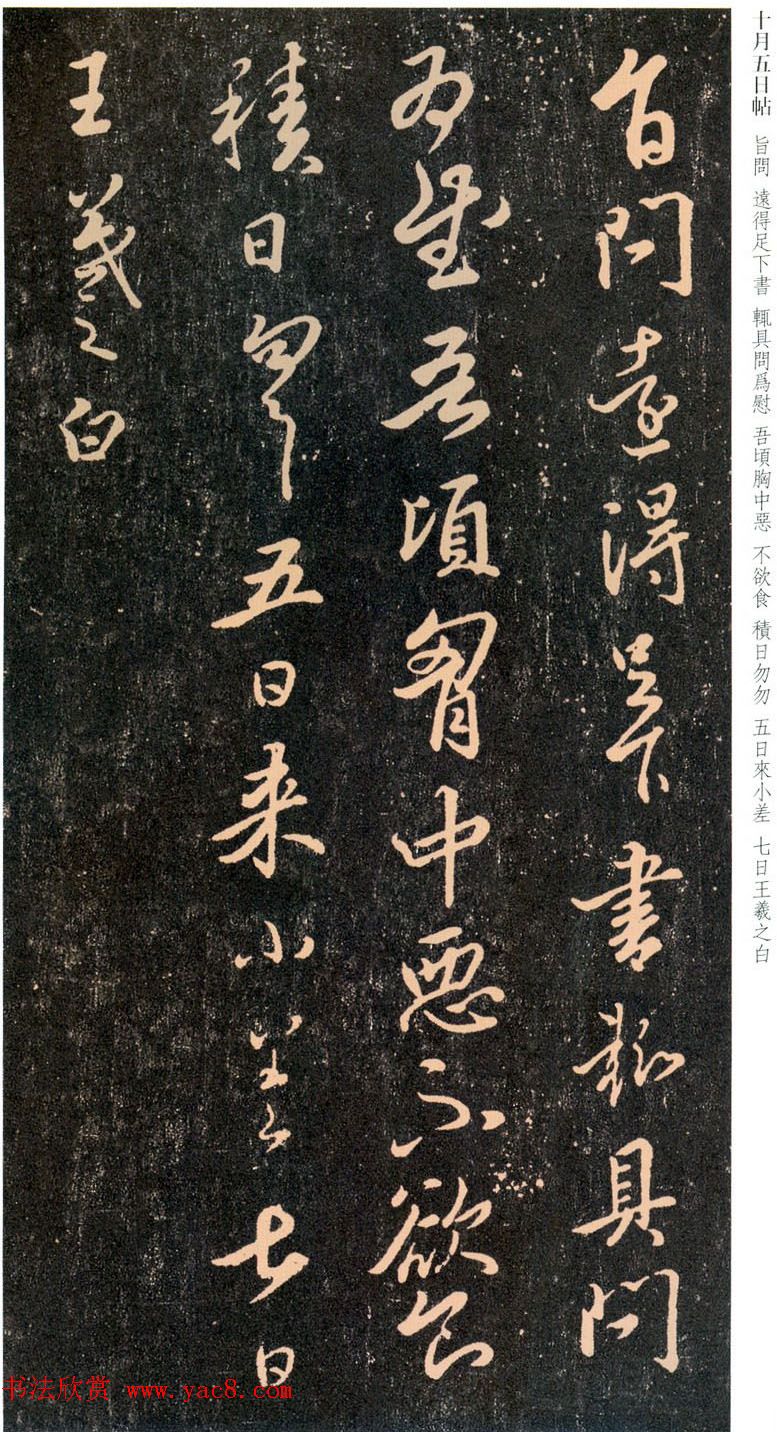 十月五日帖 旨問 遠得足下書 輒具問爲慰 吾頃胸中惡 不欲食 積日勿勿 五日來小差 七日王羲之白
旨問遠得足下書輒具問
為慰吾頃胷中惡不欲食
積日勿勿五日来小差七日
王羲之白
书法欣赏 www.yac8.com